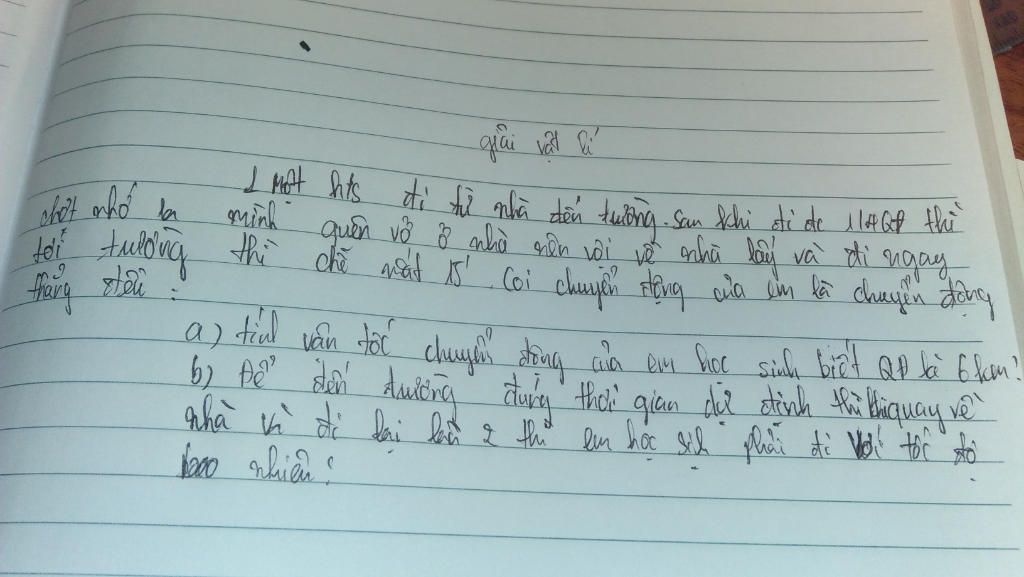 giải vật lí
1 Một hs đi từ nhà đến trường. Sau khi đi đc 1/4 QĐ thì
chợt nhớ là mình quên vở ở nhà nên vội về nhà lấy và đi ngay
tới trường thì chễ mất 15'. Coi chuyển động của em là chuyển động
thẳng đều:
a) tính vận tốc chuyển động của em học sinh biết QĐ là 6km?
b) Để đến trường đúng thời gian dự định thì khi quay về
nhà và đi lại lần 2 thì em học sinh phải đi với tốc độ
bao nhiêu?